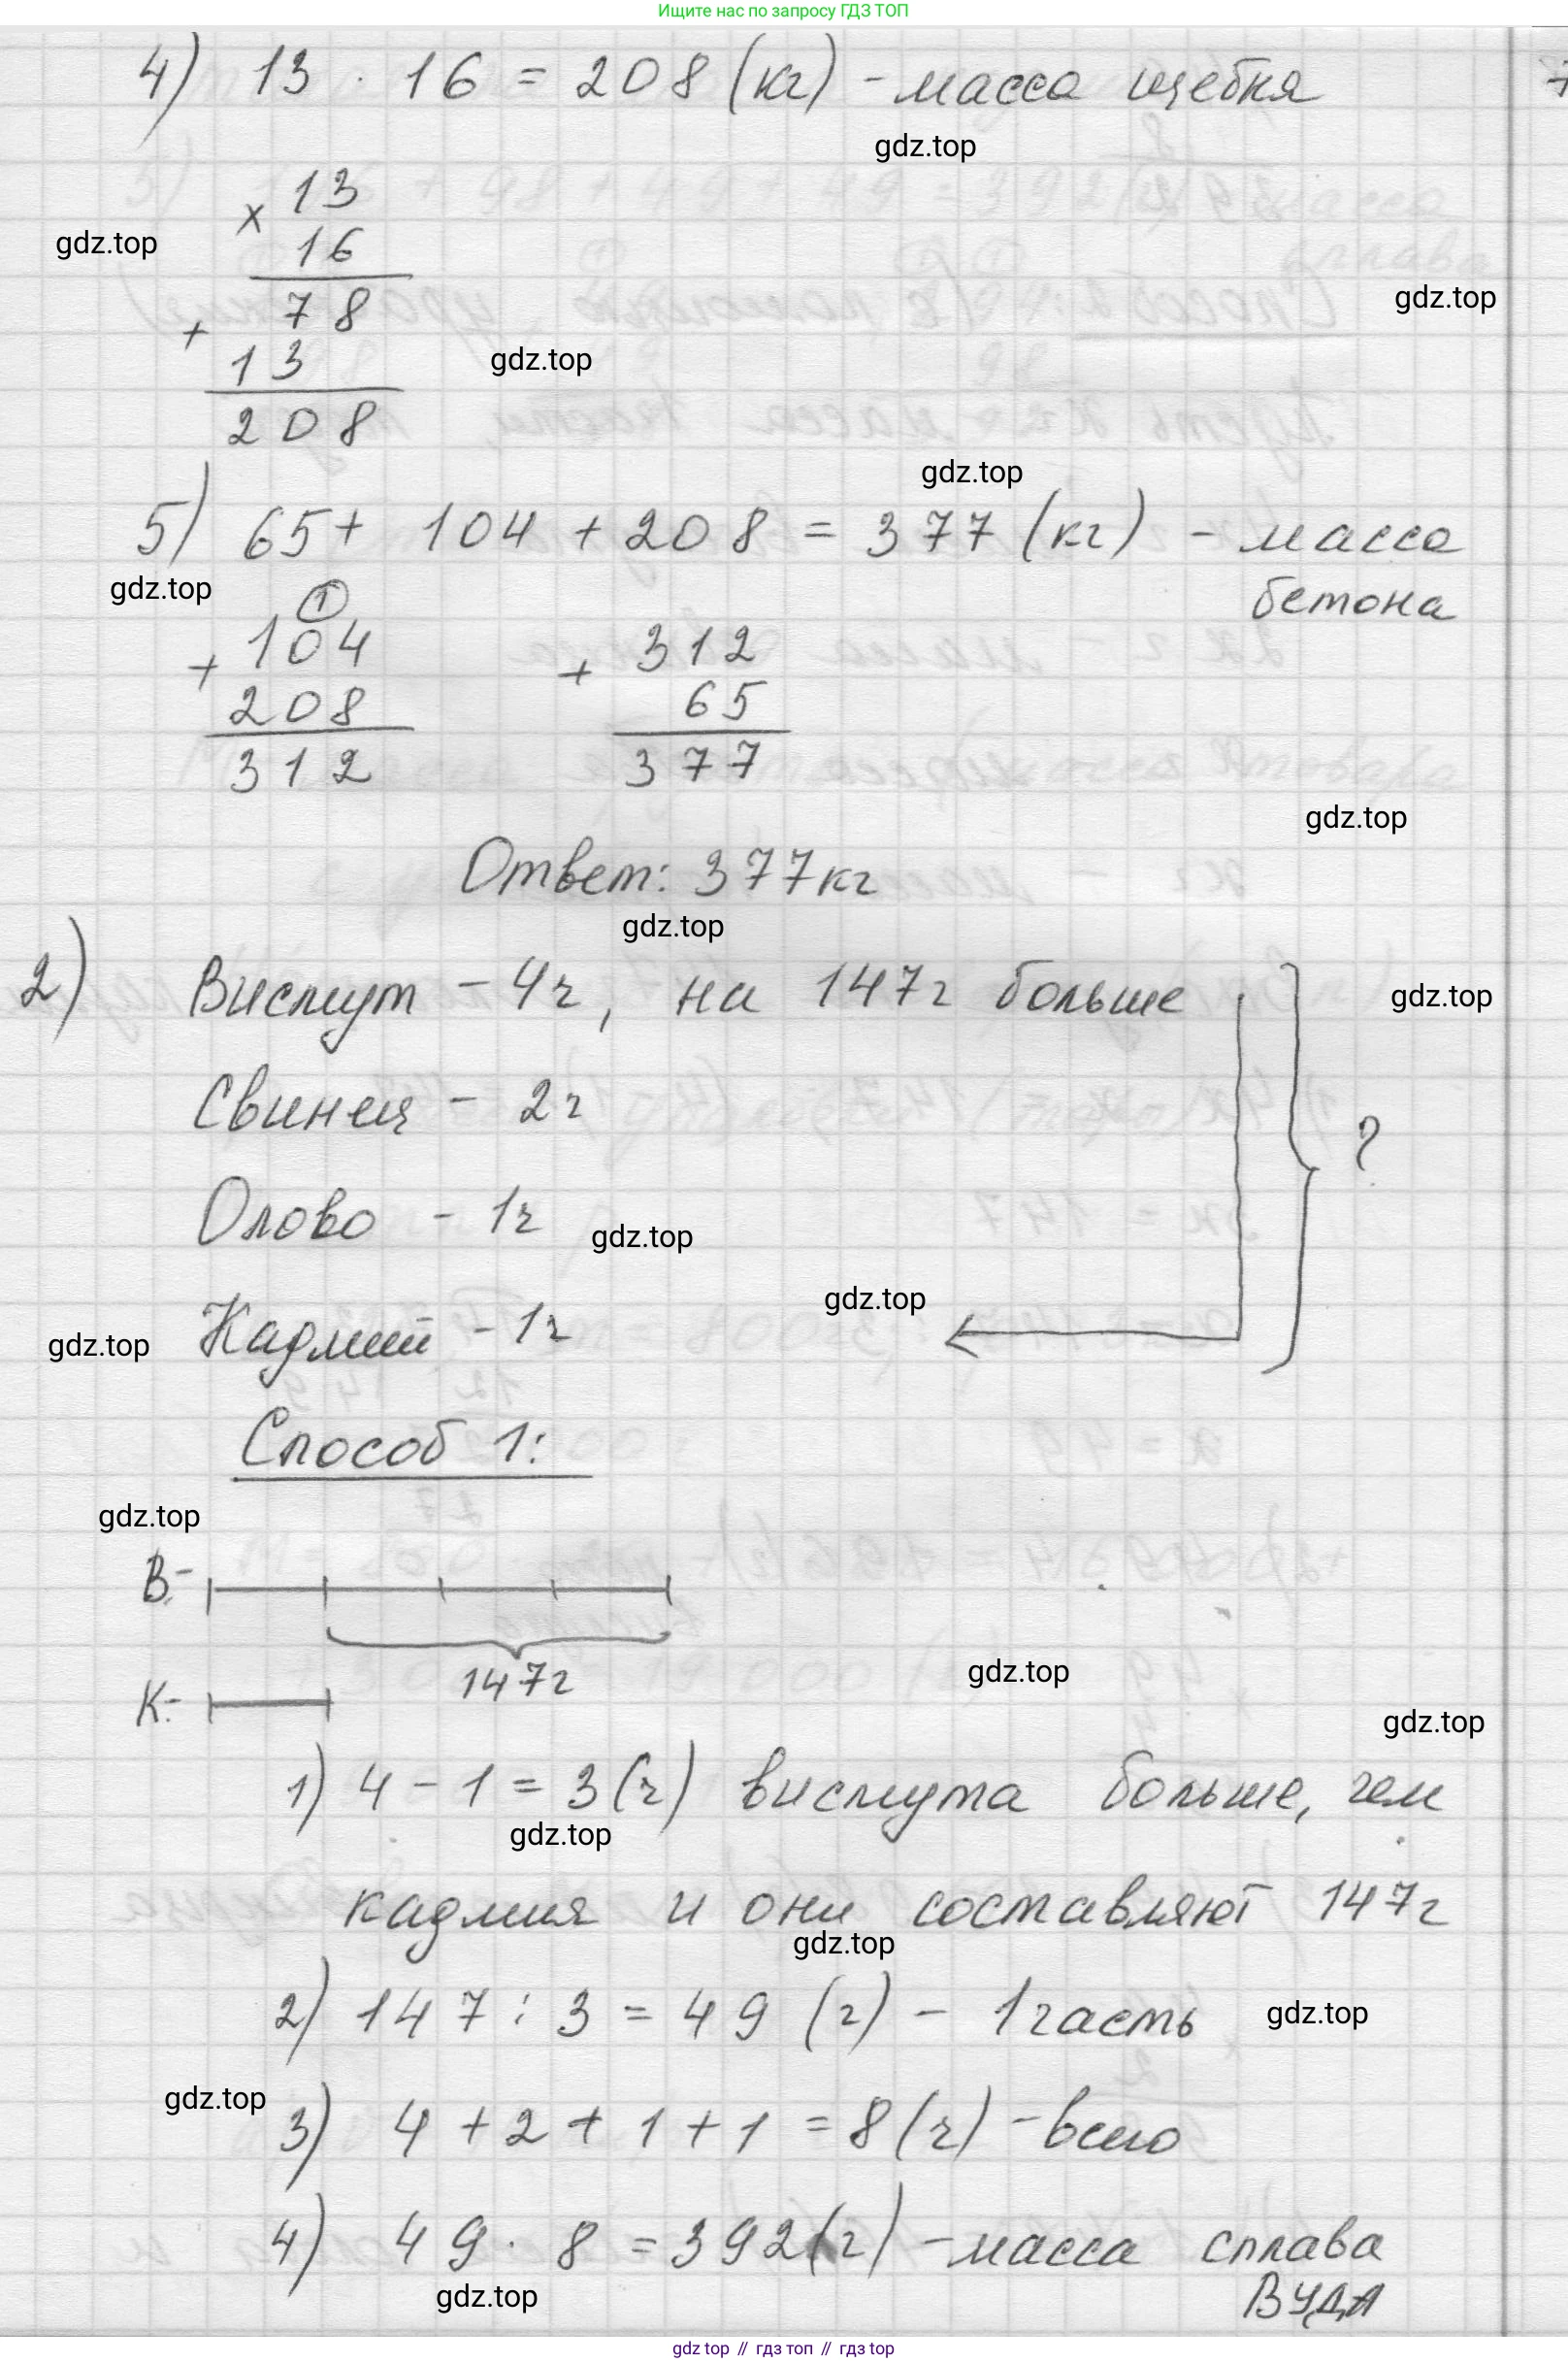 Ищите нас по запросу ГДЗ ТОП
4) 13 · 16 = 208 (кг) - масса щебня
gdz.top
× 13
gdz.top
16
78
gdz.top
+
13
gdz.top
208
gdz.top
5) 65 + 104 + 208 = 377 (кг) - масса
бетона
gdz.top
1
+ 104
208
312
+ 312
65
377
gdz.top
Ответ: 377 кг
gdz.top
2) Висмут - 4ч, на 147г больше
gdz.top
Свинец - 2ч
?
Олово - 1ч
gdz.top
gdz.top
Кадмий - 1ч
gdz.top
Способ 1:
gdz.top
В:-
147г
gdz.top
К:-
gdz.top
1) 4 - 1 = 3 (ч) висмута больше, чем
gdz.top
кадмия и они составляют 147г
gdz.top
2) 147 : 3 = 49 (г) - 1 часть
gdz.top
gdz.top
3) 4 + 2 + 1 + 1 = 8 (ч) - всего
4) 49 · 8 = 392 (г) - масса сплава
ВУДА
gdz.top
gdz top // гдз топ // гдз top